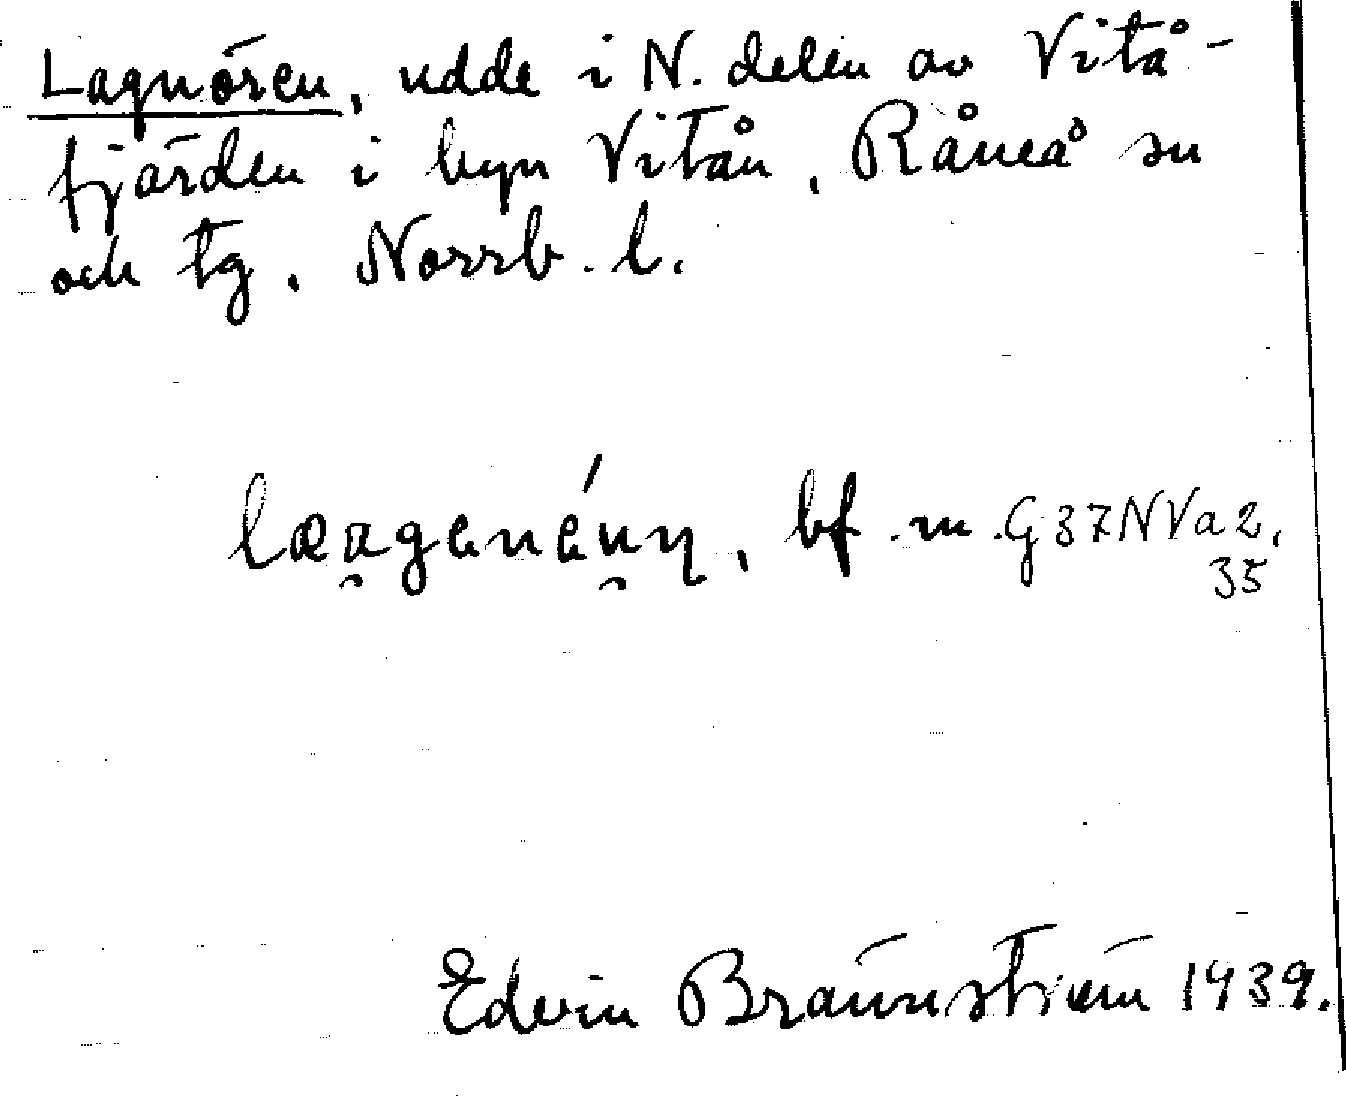 Lagnören, udde i N. delen av Vitå-
fjärden i byn Vitån, Råneå sn
och tg. Norrb. l.
bf. m G37NVa2,
35
Edvin Brännström 1939.